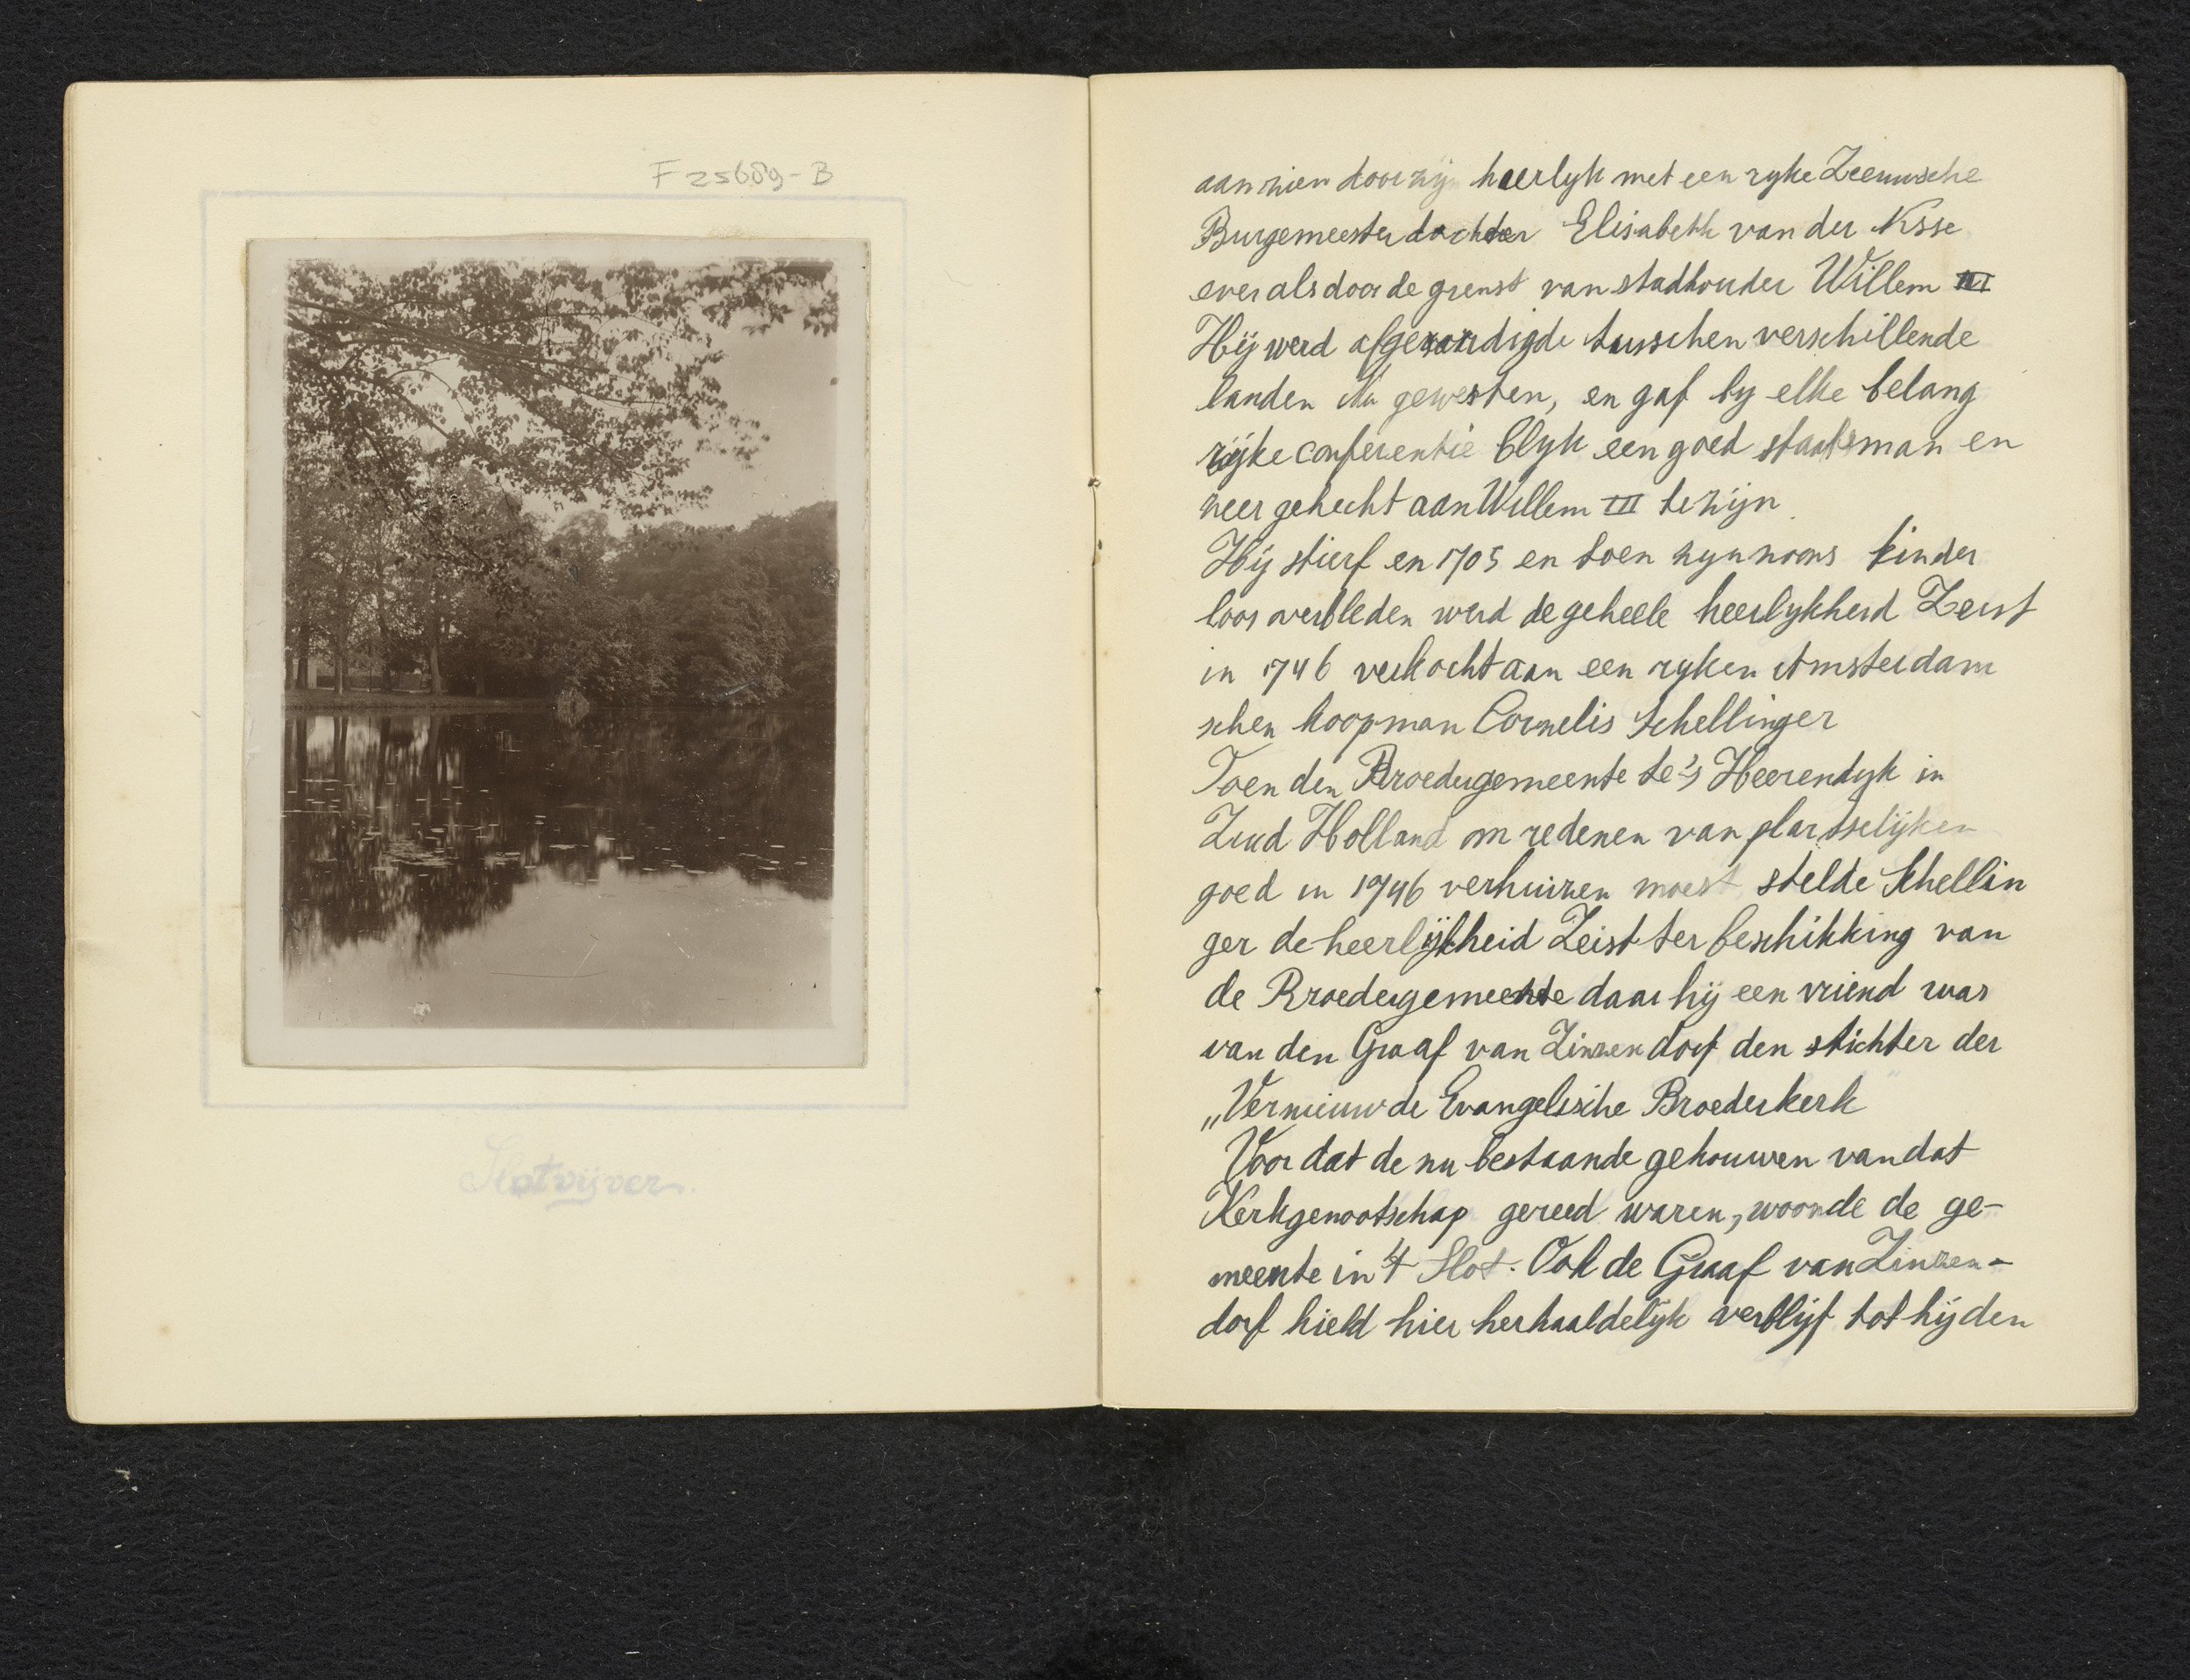 F 25689-B
Slotvijver.
aanzien door zijn heerlyk met een ryke Zeeuwsche
Burgemeester dochter Elisabeth van der Nisse
even als door de gunst van stadhouder Willem III
Hij werd afgevaardigde tusschen verschillende
landen gewesten, en gaf by elke belang
rijke conferentie blyk een goed staatsman en
zeer gehecht aan Willem III te zijn
Hij stierf en 1705 en toen zyn zoons kinder
loos overbleden werd de geheele heerlykheid Zeist
in 1746 verkocht aan een ryken Amsterdam
schen koopman Cornelis Schellinger
Toen den Broedergemeente te 's Heerendyk in
Zuid Holland om redenen van plaatselijken
goed in 1746 verhuizen moest stelde Schellin
ger de heerlijkheid Zeist ter beschikking van
de Broedergemeente daar hij een vriend was
van den Graaf van Zinzendorf den stichter der
„Vernieuwde Evangelische Broederkerk
Voor dat de nu bestaande gebouwen van dat
Kerkgenootschap gereed waren, woonde de ge-
meente in 't Slot. Ook de Graaf van Zinzen-
dorf hield hier herhaaldelijk verblijf tot hij den